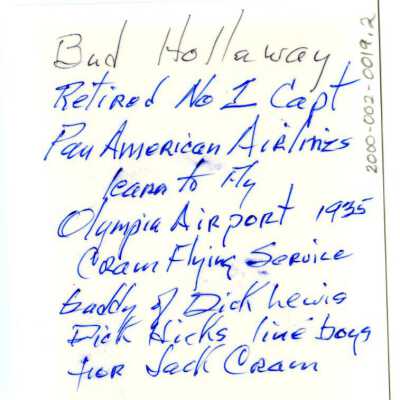 Bud Hollaway
Retired No 1 Capt
Pan American Airlines
learn to Fly
Olympia Airport 1935
Cram Flying Service
buddy of Dick Lewis
Dick Hicks line boys
for Jack Cram
2000-002-0019.2